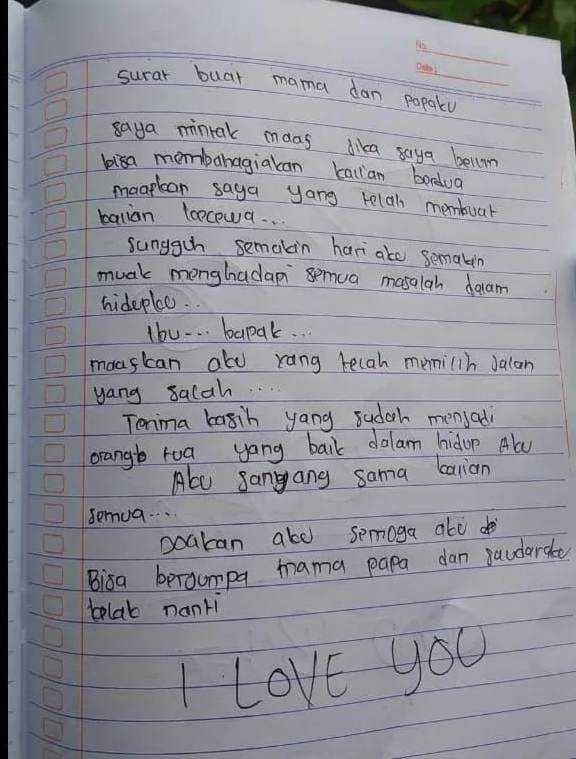 No.
Date:
surat buat mama dan papaku
saya mintak maas jika saya belum
bisa membahagiakan kalian berdua
maapkan saya yang telah membuat
kalian kecewa...
sungguh semakin hari aku semakin
muak menghadapi semua masalah dalam
hidupku..
Ibu... bapak...
maaskan aku yang telah memilih jalan
yang salah ....
Terima kasih yang sudah menjadi
orang tua yang baik dalam hidup Aku
Aku sangyang sama kalian
semua....
Doakan aku semoga aku
Bisa berjumpa mama papa dan saudaraku
kelak nanti
I LOVE YOU